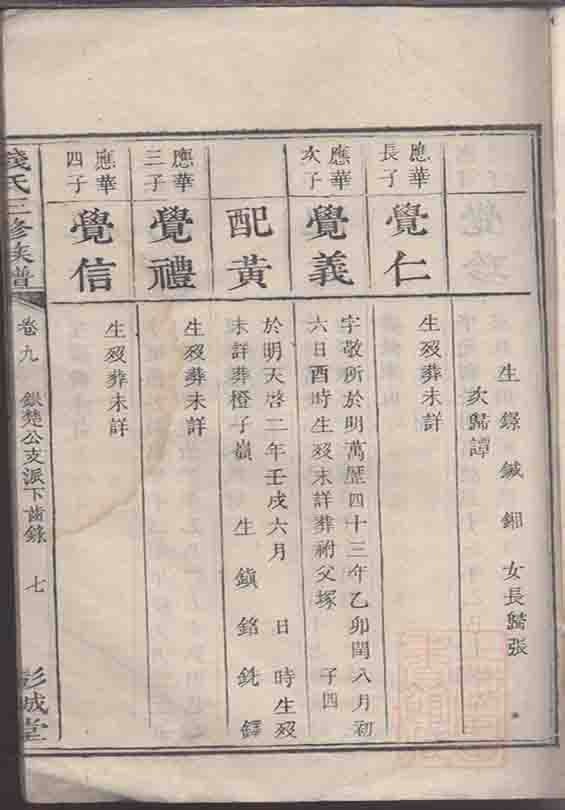 生鐛鍼鎺女長歸張
次歸譚
應華長子
覺仁
生歿葬未詳
應華次子
覺義
字敬所於明萬歷四十三年乙卯閏八月初
六日酉時生歿未詳葬祔父塚 子四
配黃
於明天啓二年壬戌六月 日 時生歿
未詳葬橙子嶺 生 鎮 銘 銑 鐸
應華三子
覺禮
生歿葬未詳
應華四子
覺信
生歿葬未詳
錢氏三修族譜
卷九 銀楚公支派下齒錄 七
彭城堂